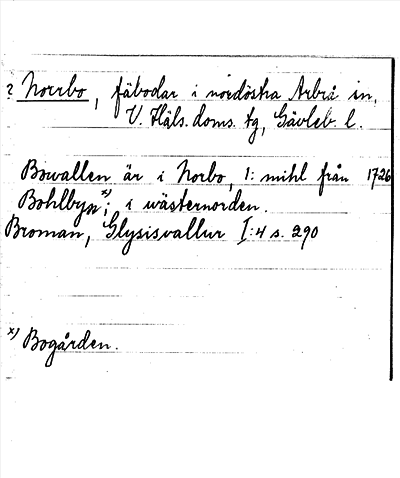 ? Norrbo, fäbodar i nordöstra Arbrå sn,
V. Häls. doms. tg, Gävleb. l.
Bowallen är i Norbo, 1: mihl från 1726
Bohlbyn x); i wästernorden.
Broman, Glysisvallur I:4 s. 290
x) Bogården.